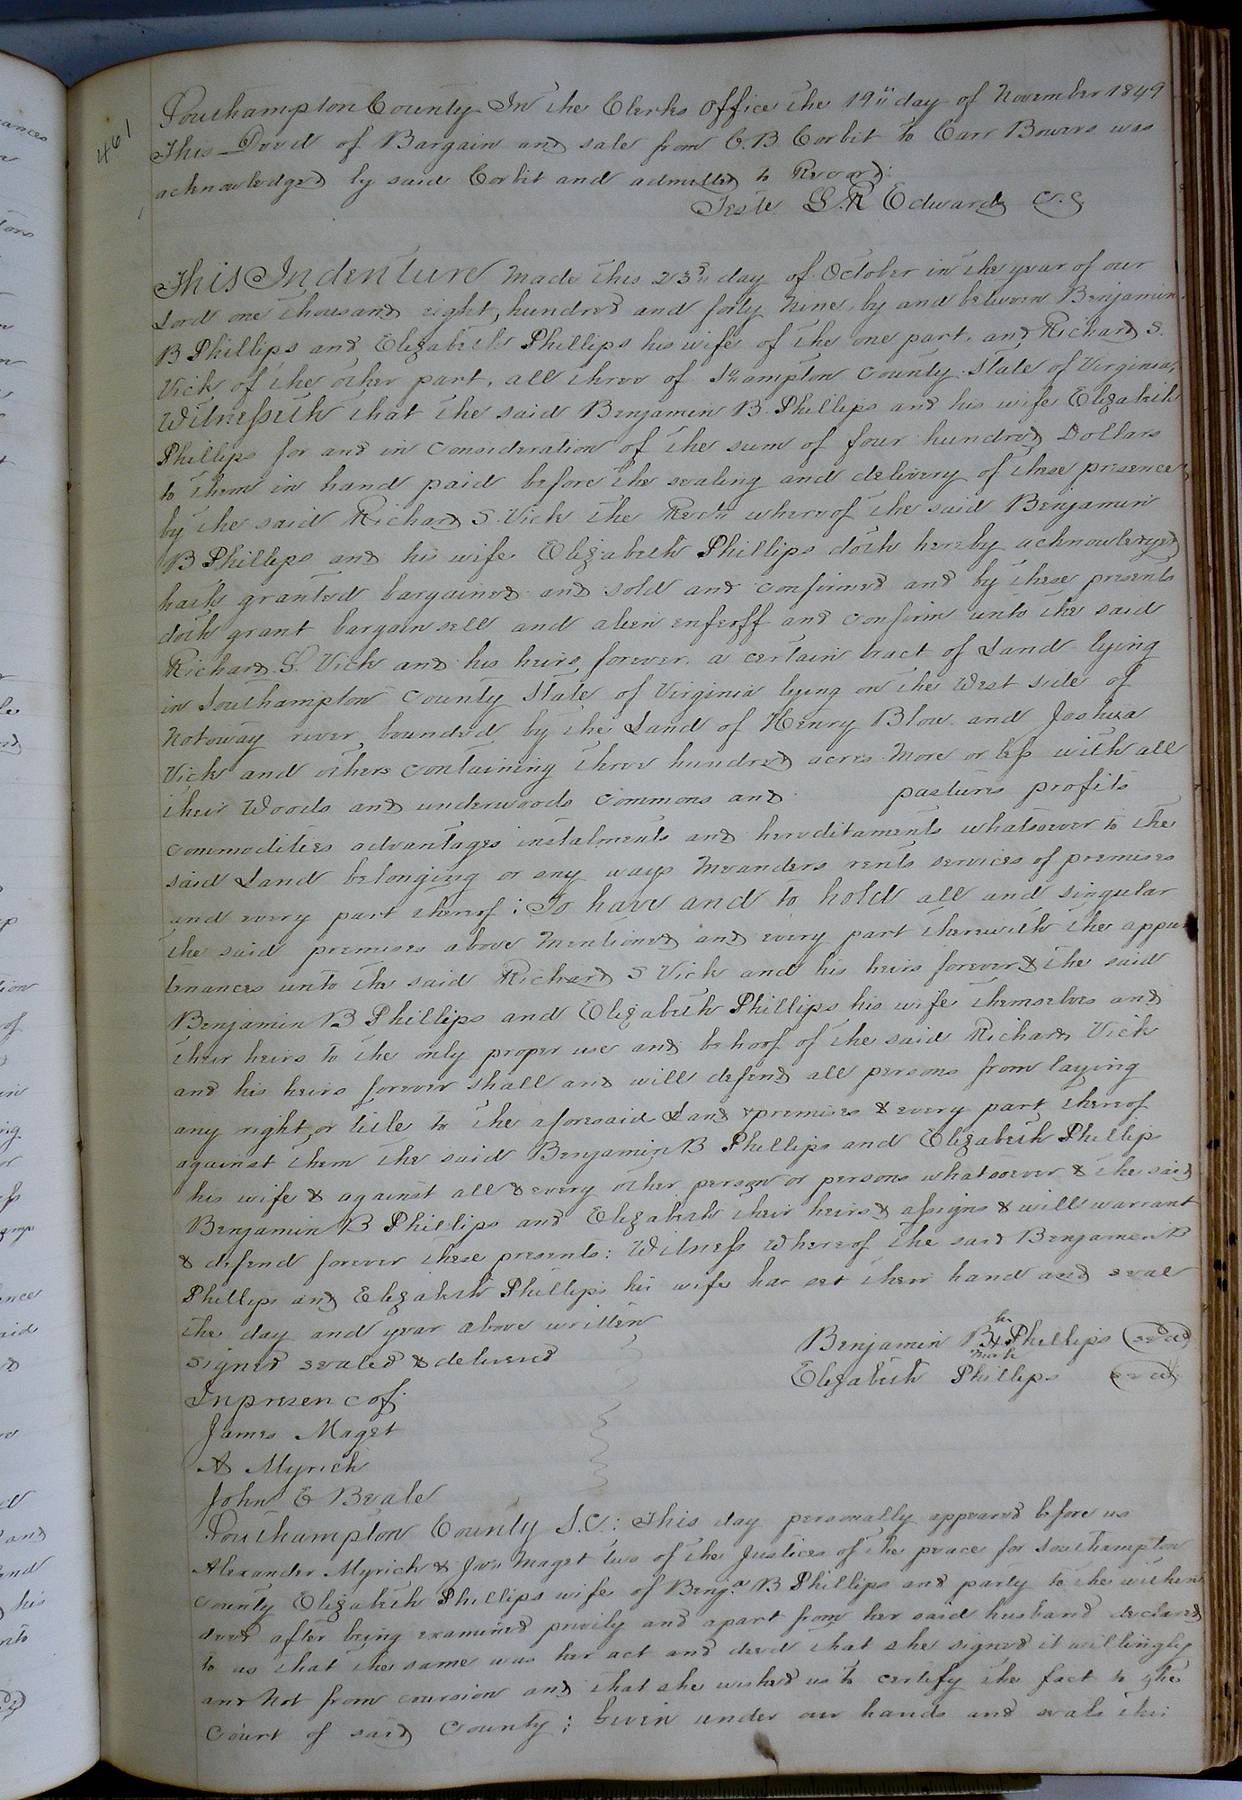 461
Southampton County In the Clerks office the 19" day of November 1849
This Deed of Bargain and sale from C. B Corbit to Carr Bowers was
acknowledged by said Corbit and admitted to Record:
Teste L. R Edwards C.S
This Indenture Made this 23d day of October in the year of our
Lord one thousand eight, hundred and forty Nine, by and between Benjamin
B Phillips and Elizabeth Phillips his wife of the one part, and Richard S.
Vick of the other part, all three of Sohampton County State of Virginia,
Witnesseth that the said Benjamin B. Phillips and his wife Elizabeth
Phillips for and in consideration of the sum of four hundred Dollars
to them in hand paid before the sealing and delivery of these presence
by the said Richard S. Vick the Rect. whereof the said Benjamin
B Phillips and his wife Elizabeth Phillips doth hereby acknowledged
hath granted bargained and sold and confirmed and by these presents
doth grant bargain sell and alien enfeoff and confirm unto the said
Richard S. Vick and his heirs forever a certain tract of Land lying
in Southampton County State of Virginia lying on the West side of
Notoway river bounded by the Land of Henry Blow and Joshua
Vick and others containing three hundred acres More or less with all
their Woods and underwoods commons and pastures profits
commodities advantages instalments and hereditaments whatsoever to the
said Land belonging or any ways Meanders rents services of premises
and every part thereof; To have and to hold all and singular
the said premises above Mentioned and every part therewith the appur
tenances unto the said Richard S Vick and his heirs forever & the said
Benjamin B Phillips and Elizabeth Phillips his wife themselves and
their heirs to the only proper use and behoof of the said Richard Vick
and his heirs forever shall and will defend all persons from laying
any right or title to the aforesaid Land & premises & every part thereof
against them the said Benjamin B Phillips and Elizabeth Phillips
his wife & against all & every other person or persons whatsoever & the said
Benjamin B Phillips and Elizabeth their heirs & assigns & will warrant
& defend forever these presents: Witness whereof the said Benjamin B
Phillips and Elizabeth Phillips his wife has set their hand and seal
the day and year above written
his
Benjamin B X Phillips (seal)
mark
signed sealed & delivered
Elizabeth Phillips (seal)
In presen c of.
James Maget
A Myrick
John E Beale
Southampton County S.C: This day personally appeared before us
Alexander Myrick & Jas Maget two of the Justices of the peace for Southampton
County Elizabeth Phillips wife of Benja B Phillips and party to the within
deed after being examined privily and apart from her said husband declared
to us that the same was her act and deed that she signed it willingly
and Not from coursion and that she wished us to certify the fact to the
Court of said County; Given under our hands and seals this